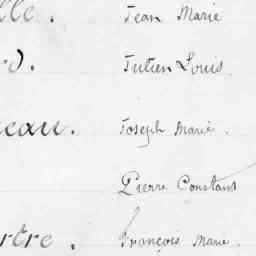 lle. Jean Marie
d. Julien Louis.
eau. Joseph Marie.
Pierre Constant
rtre. François Marie.